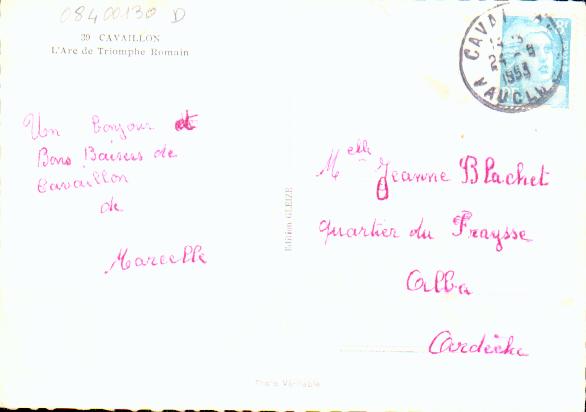 08400130 D
39 CAVAILLON
L'Arc de Triomphe Romain
CAVAI
24
1953
VAUCLUSE
Un bonjour et
Bons Baisers de
Cavaillon
de
Marcelle
Edition GLEIZE
Melle Jeanne Blachet
quartier du Fraysse
Alba
Ardèche
Photo Véritable